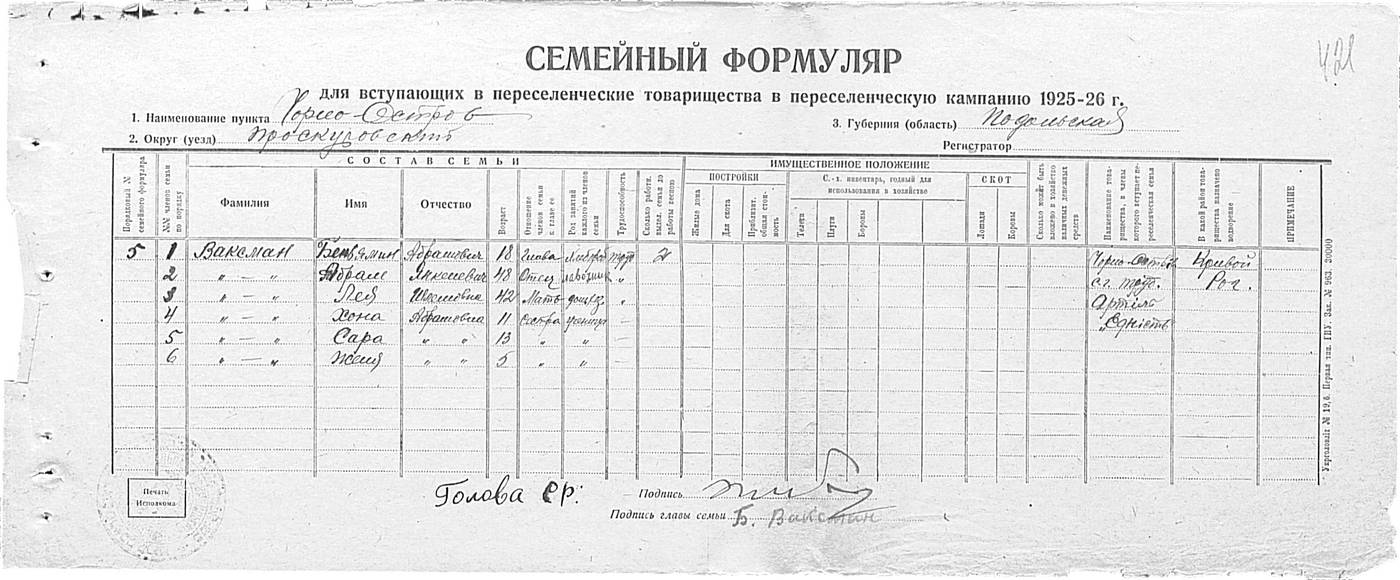 421
СЕМЕЙНЫЙ ФОРМУЛЯР
для вступающих в переселенческие товарищества в переселенческую кампанию 1925-26 г.
1. Наименование пункта Чорно-Остров
3. Губерния (область) Подольская
2. Округ (уезд) Проскуровский
Регистратор
СОСТАВ СЕМЬИ
ИМУЩЕСТВЕННОЕ ПОЛОЖЕНИЕ
ПОСТРОЙКИ
С.-х. инвентарь, годный для использования в хозяйстве
СКОТ
Порядковый № семейного формуляра
№№ членов семьи по порядку
Фамилия
Имя
Отчество
Возраст
Отношение членов семьи к главе ее
Род занятий каждого из членов семьи
Трудоспособность
Сколько работн. высыл. семья до работы весною
Жилые дома
Для скота
Приблизит. общая стоимость
Телеги
Плуги
Бороны
Лошади
Коровы
Сколько может быть вложено в хозяйство наличных денежных средств
Наименование товарищества, в члены которого вступает переселенческая семья
В какой район товарищества назначено водворение
ПРИМЕЧАНИЕ
5 1 Ваксман Бенямин Абрамович 18 глава 2 Чорно-Остров Кривой
2 " — " Абрам 48 Отец " с.г. тов. Рог.
3 " — " Лея 42 Мать домхоз. " Артіль
4 " — " Хона Абрамовна 11 сестра ученица — "Єдність
5 " — " Сара " " 13 " "
6 " — " Женя " " 5 " "
Укрголовліт № 19,б. Первая тип. ГПУ. Зак. № 963. 20000
Печать Исполкома
Голова ср:
Подпись
Подпись главы семьи Б. Ваксман